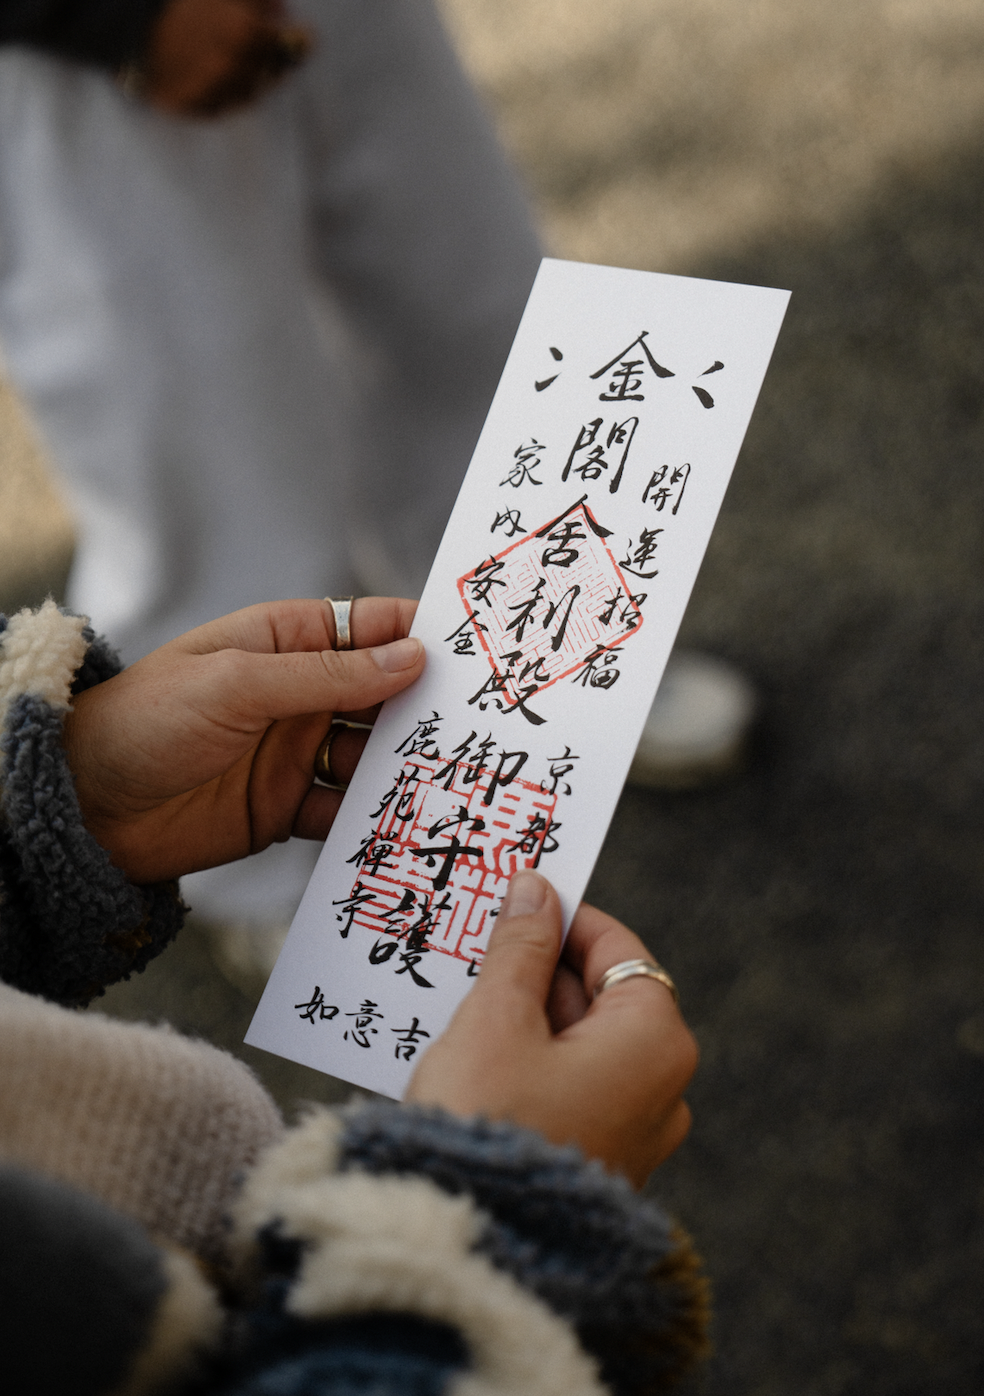 開運招福
京都
金閣舍利殿御守護
家内安全
鹿苑禪寺
如意吉